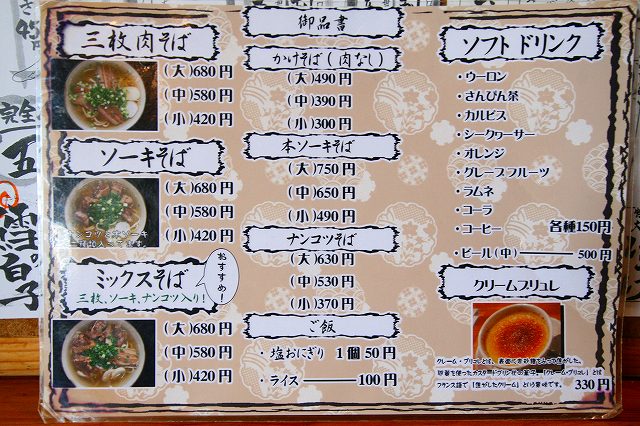 御品書
三枚肉そば
(大)680円
(中)580円
(小)420円
ソーキそば
(大)680円
(中)580円
(小)420円
ミックスそば
三枚、ソーキ、ナンコツ入り!
おすすめ!
(大)680円
(中)580円
(小)420円
かけそば(肉なし)
(大)490円
(中)390円
(小)300円
本ソーキそば
(大)750円
(中)650円
(小)490円
ナンコツそば
(大)630円
(中)530円
(小)370円
ご飯
・塩おにぎり 1個50円
・ライス 100円
ソフトドリンク
・ウーロン
・さんぴん茶
・カルピス
・シークヮーサー
・オレンジ
・グレープフルーツ
・ラムネ
・コーラ
・コーヒー 各種150円
・ビール(中) 500円
クリームブリュレ
クレーム・ブリュレとは、表面に
フランス語で「焦がしたクリーム」という意味です。
330円
完全
五
雪白